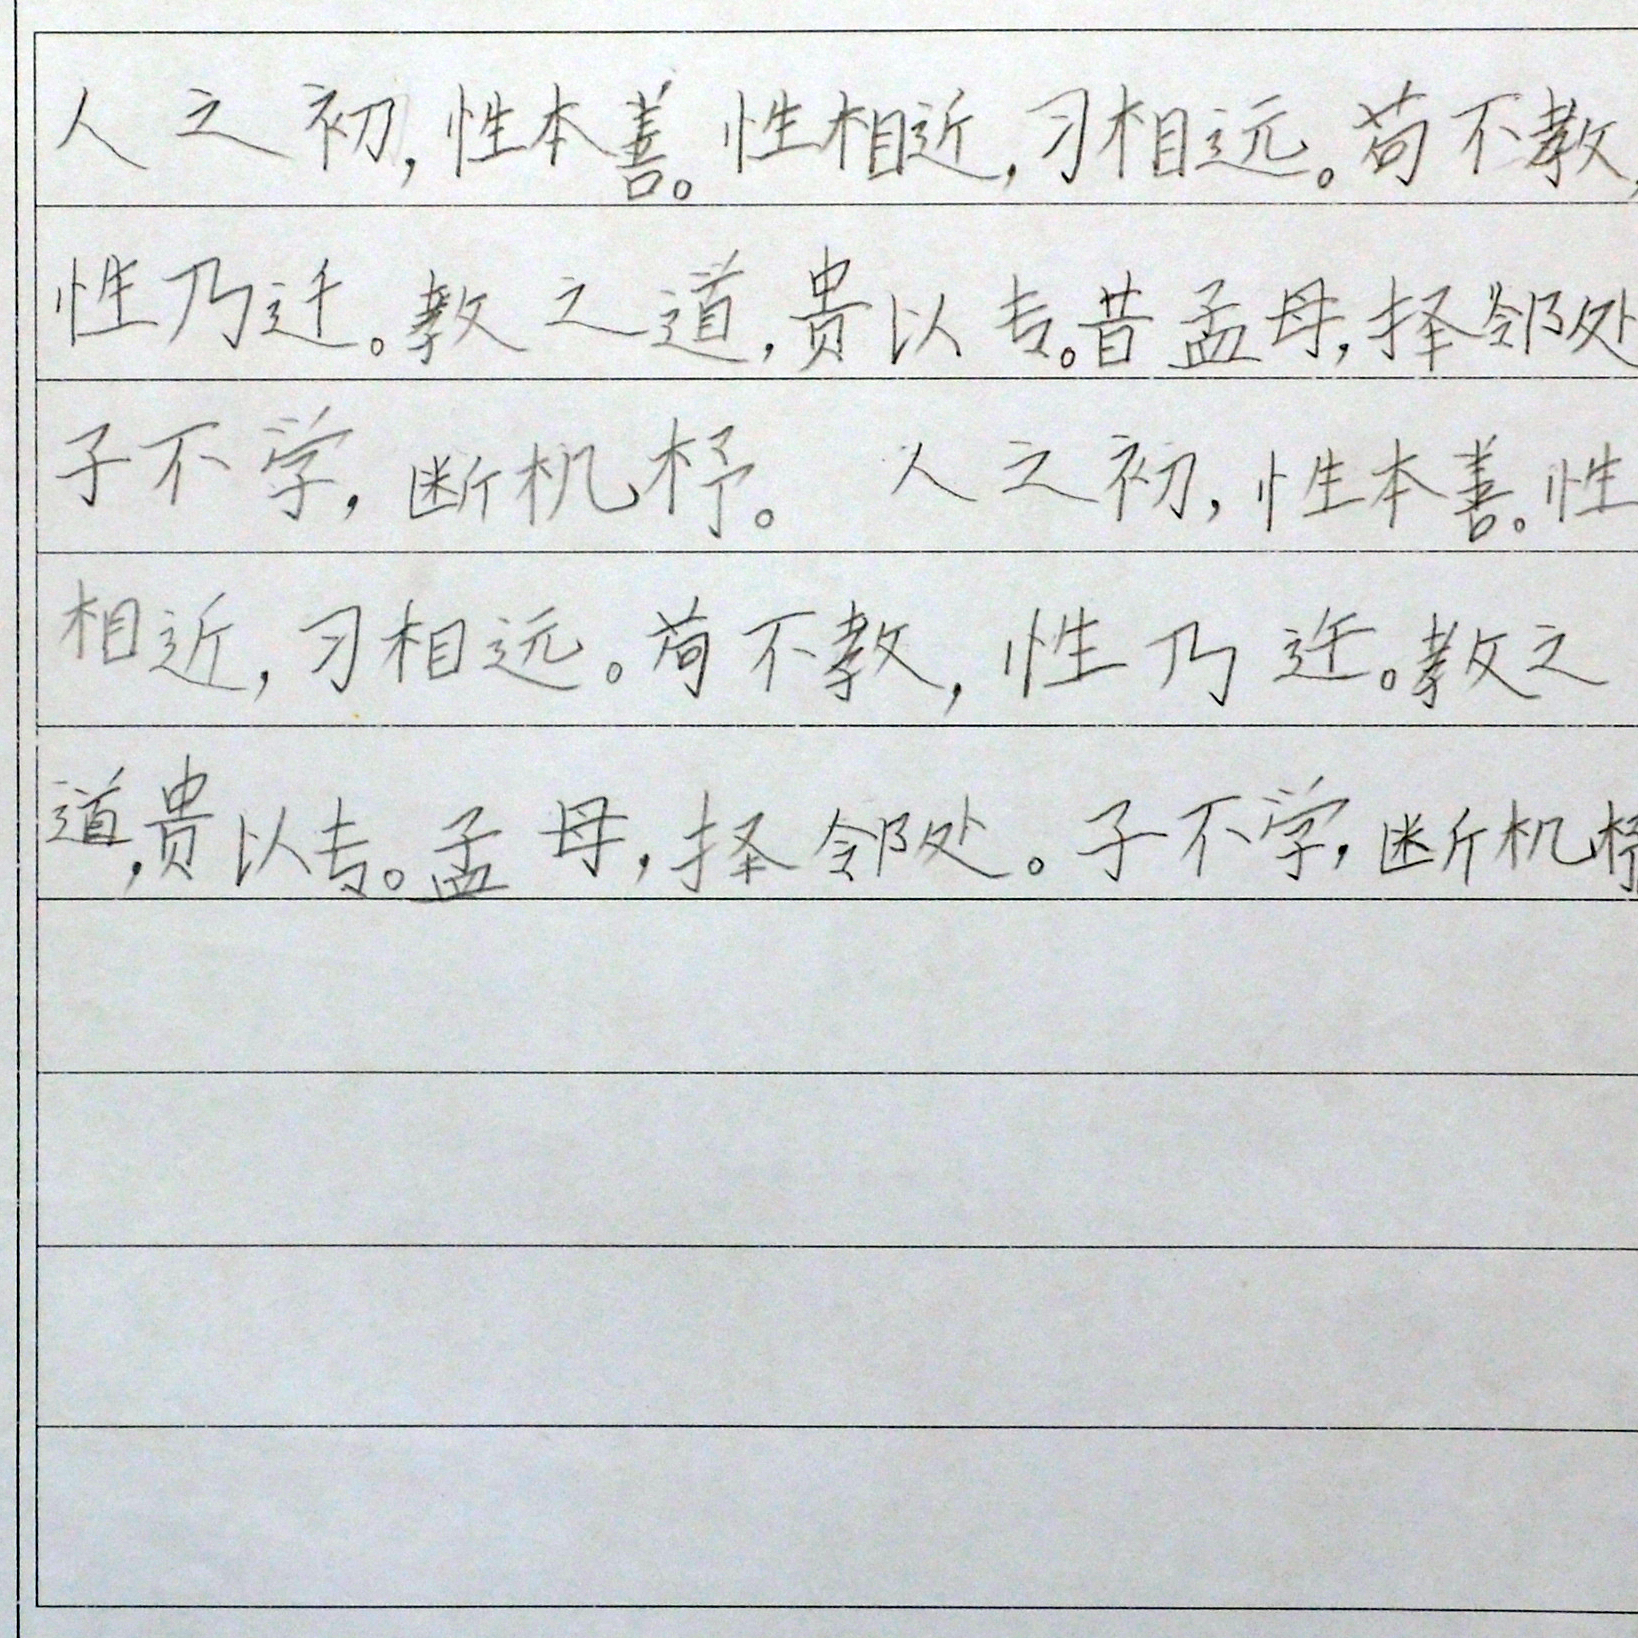 人之初,性本善。性相近,习相远。苟不教,
性乃迁。教之道,贵以专。昔孟母,择邻处
子不学,断机杼。 人之初,性本善。性
相近,习相远。苟不教,性乃迁。教之
道,贵以专。孟母,择邻处。子不学,断机杼